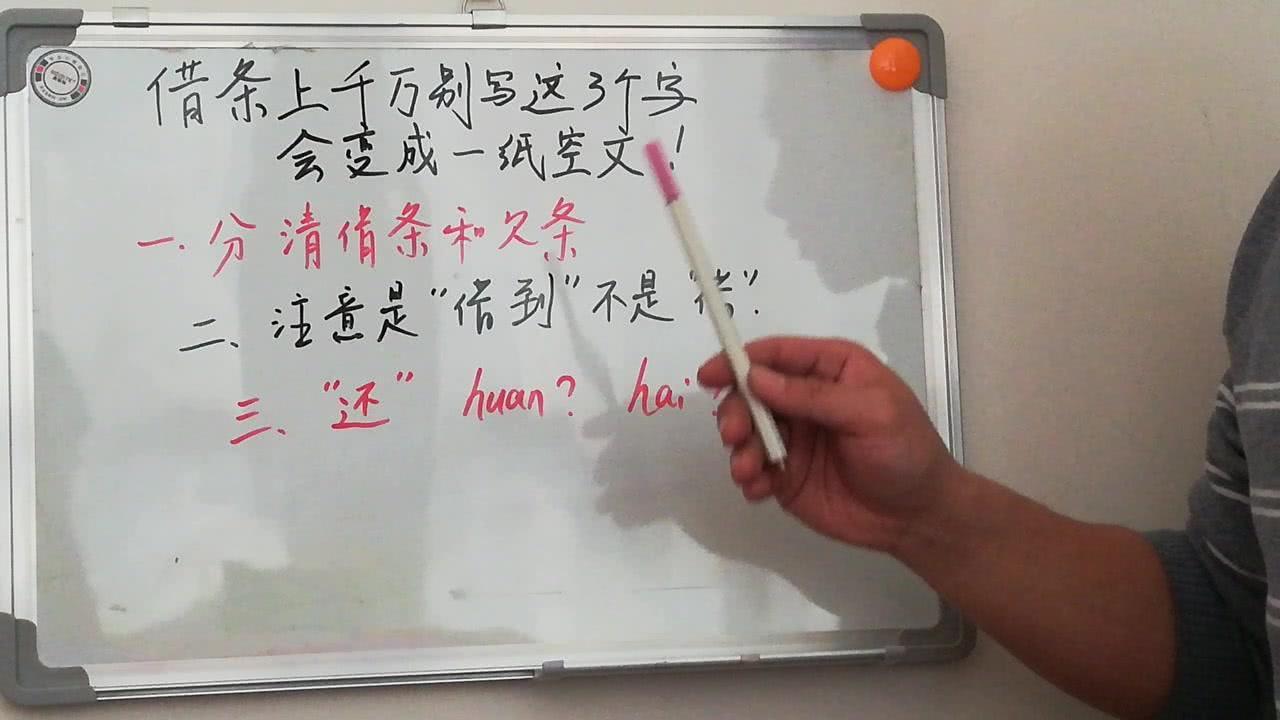 借条上千万别写这3个字
会变成一纸空文!
一.分清借条和欠条
二、注意是“借到”不是“借”.
三、“还” huan? hai?